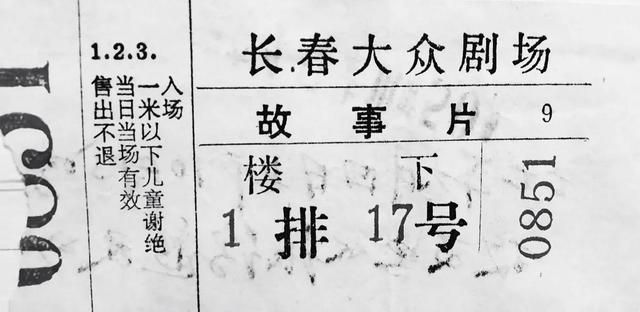 长春大众剧场
故事片 9
楼 下
1排 17号
0851
1.2.3.
售出不退
当日当场有效
一米以下儿童谢绝
入场